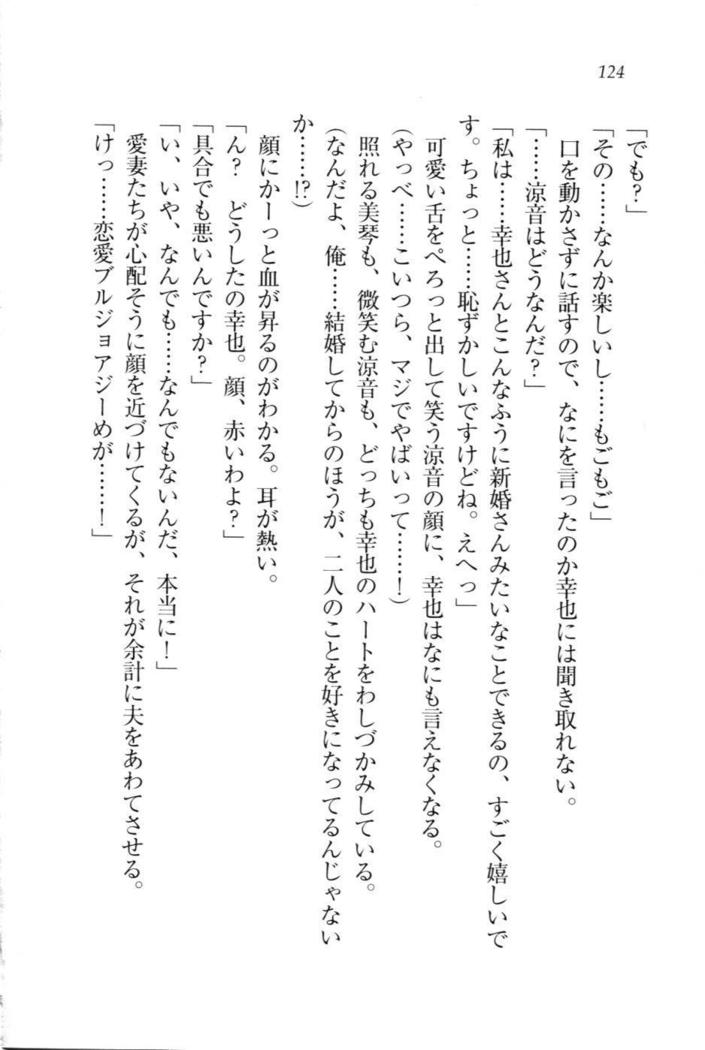 124
「でも？」
「その……なんか楽しいし……もごもご」
　口を動かさずに話すので、なにを言ったのか幸也には聞き取れない。
「……涼音はどうなんだ？」
「私は……幸也さんとこんなふうに新婚さんみたいなことできるの、すごく嬉しいで
す。ちょっと……恥ずかしいですけどね。えへっ」
　可愛い舌をぺろっと出して笑う涼音の顔に、幸也はなにも言えなくなる。
（やっべ……こいつら、マジでやばいって……！）
　照れる美琴も、微笑む涼音も、どっちも幸也のハートをわしづかみしている。
（なんだよ、俺……結婚してからのほうが、二人のことを好きになってるんじゃない
か……!?）
　顔にかーっと血が昇るのがわかる。耳が熱い。
「ん？　どうしたの幸也。顔、赤いわよ？」
「具合でも悪いんですか？」
「い、いや、なんでも……なんでもないんだ、本当に！」
　愛妻たちが心配そうに顔を近づけてくるが、それが余計に夫をあわてさせる。
「けっ……恋愛ブルジョアジーめが……！」